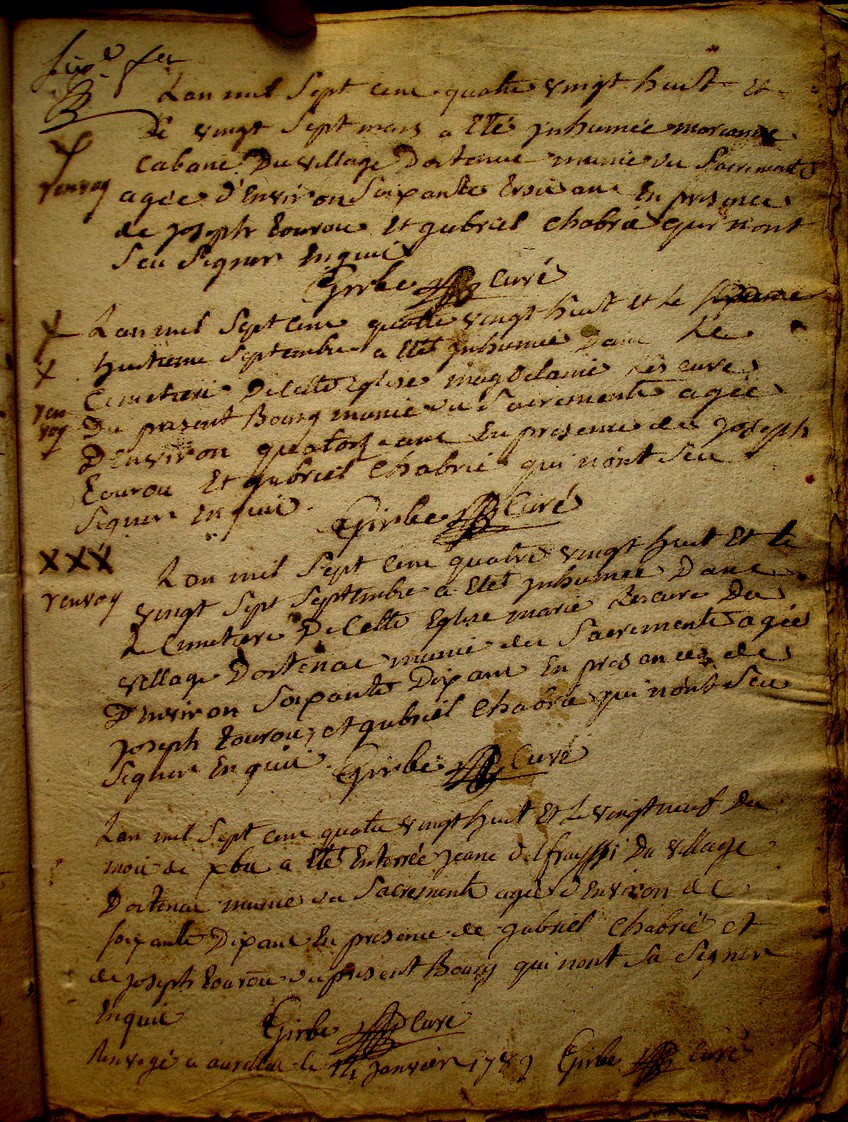 Lan mil Sept cent quatre vingt huit Et
Le vingt Sept mars a Eté Inhumée marianne
Cabane Du village Dortenac munie des Sacrements
renvoy
agée d'Environ Soixante trois ans En presence
de joseph tourou Et gabriel Chabrié qui n'ont
Seu Signer Enquis
Girbe Curé
Lan mil Sept cent quatre vingt huit et le
huitieme Septembre a Eté Inhumée Dans Le
Cimetiere De Cette Eglise magdelaine
ren
voy
Du present Bourg munie des Sacrements agée
D'Environ quatorze ans En presence de joseph
tourou Et gabriel Chabrié qui n'ont Seu
Signer Enquis
Girbe Curé
renvoy
Lan mil Sept cent quatre vingt huit Et le
vingt Sept Septembre a Eté Inhumée Dans
Le Cimetiere De Cette Eglise marie Lescure Du
village Dortenac munie des Sacrements agée
D'Environ Soixante Dix ans En presance de
joseph tourou, et gabriel Chabrié qui n'ont Seu
Signer Enquis
Girbe Curé
Lan mil Sept cent quatre vingt huit Et Le vingt neuf Du
mois de xbre a Eté Enterrée jeane Du village
Dortenac munie des Sacrements agée d'Environ de
soixante Dix ans En presence de gabriel Chabrié et
de joseph tourou du present Bourg qui n'ont Su Signer
Enquis
Girbe Curé
a aurillac le 14 janvier 1789 Girbe Curé